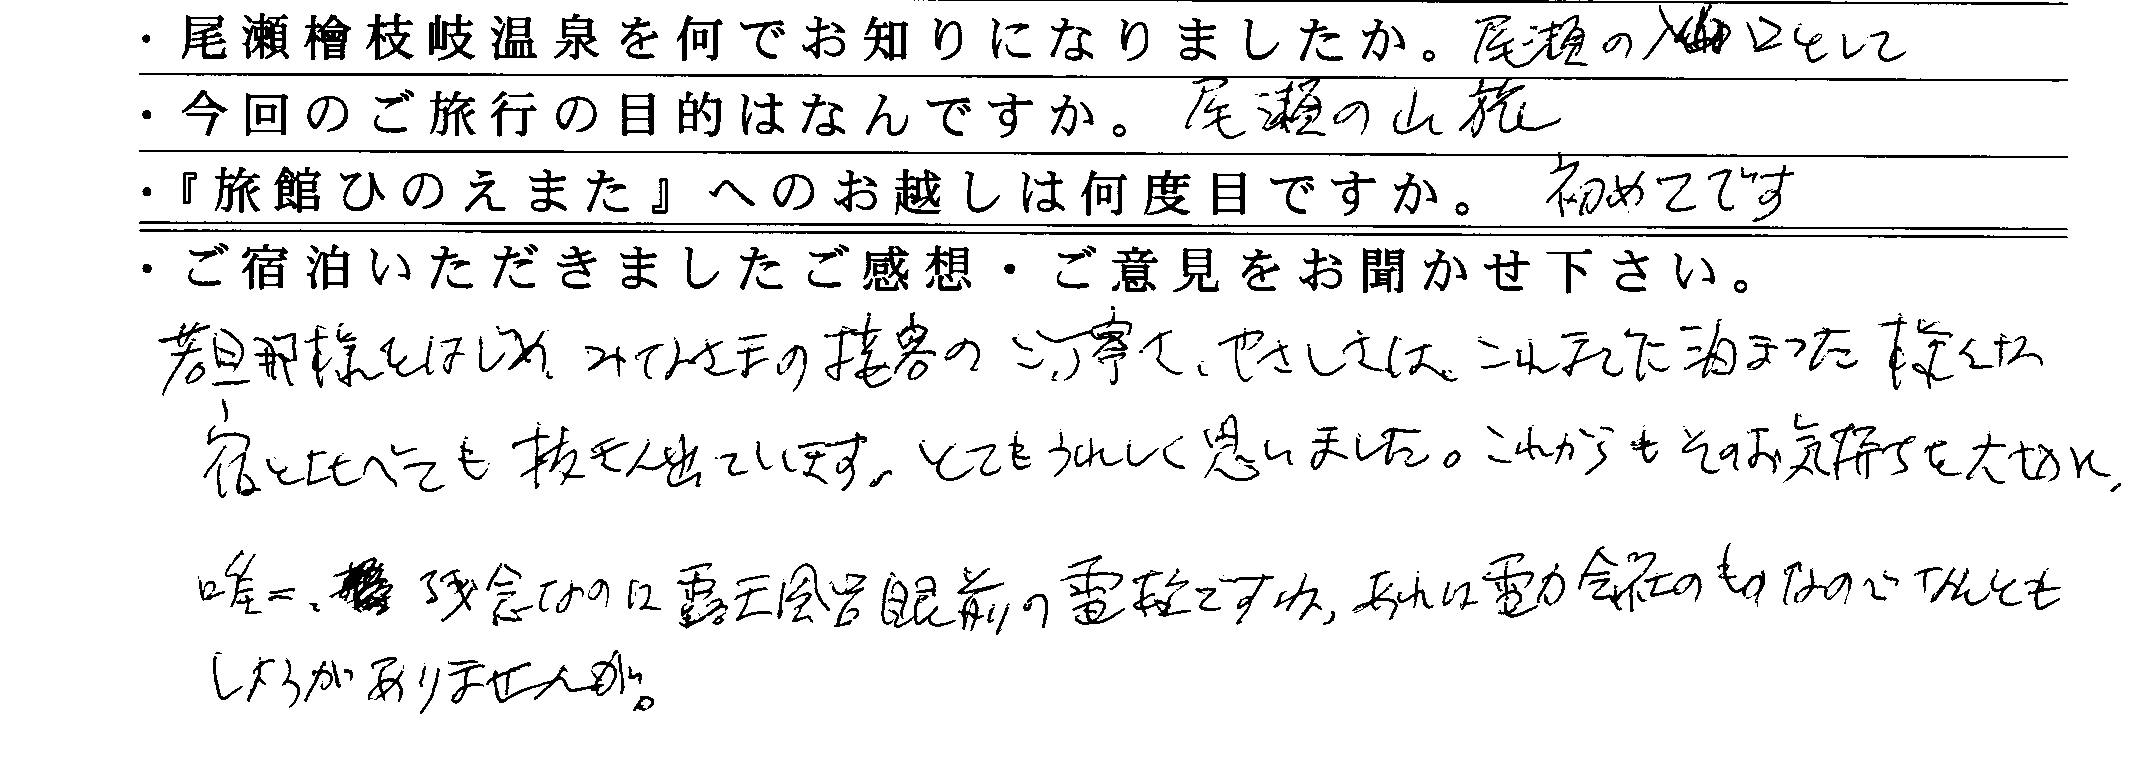 ・尾瀬檜枝岐温泉を何でお知りになりましたか。尾瀬の入口として
・今回のご旅行の目的はなんですか。尾瀬の山旅
・『旅館ひのえまた』へのお越しは何度目ですか。初めてです
・ご宿泊いただきましたご感想・ご意見をお聞かせ下さい。
若旦那様をはじめ、みなさまの接客のご丁寧さ、やさしさは、これまでに泊まった様々な
宿と比べても抜きん出ています。とてもうれしく思いました。これからもそのお気持ちを大切に、
唯一、残念なのは露天風呂眼前の電柱ですが、あれは電力会社のものなのでなんとも
しようがありませんが。